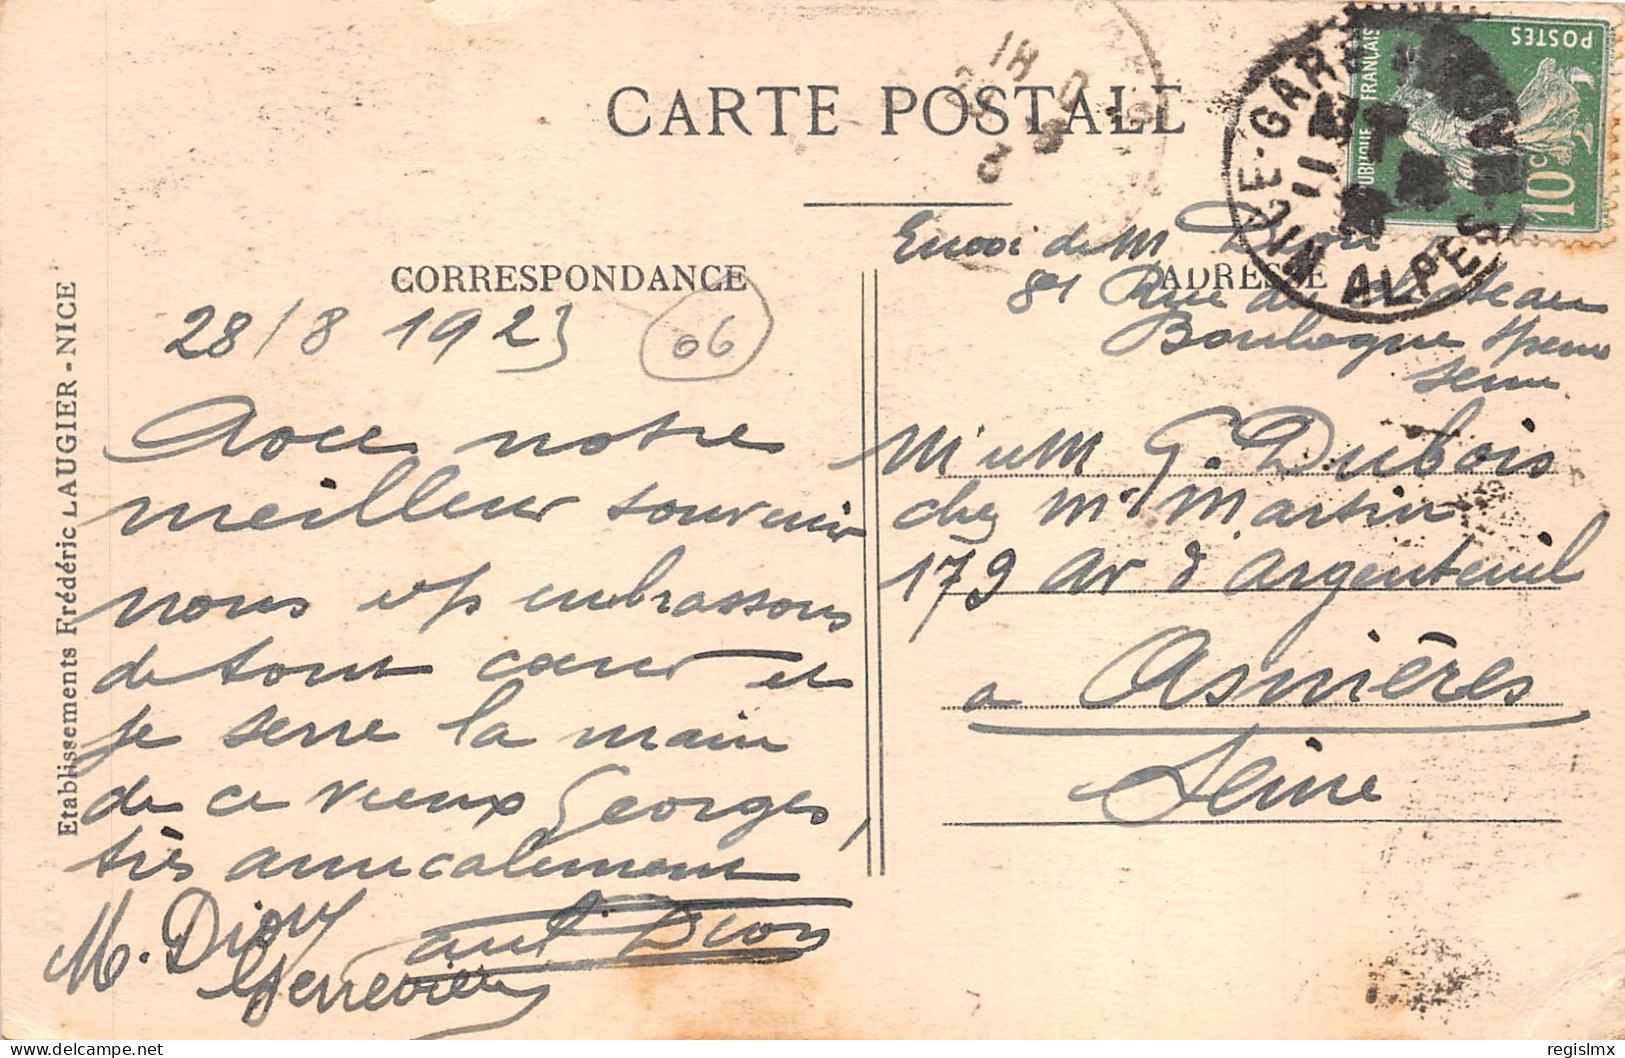 CARTE POSTALE
CORRESPONDANCE
ADRESSE
Etablissements Frédéric LAUGIER - NICE
28/8 1923
06
Avec notre
meilleur souvenir
nous embrassons
de tout cœur et
je serre la main
de ce vieux Georges,
très amicalement
M. Dion
ant Dion
Envoi de M Dion
81 Rue du château
Boulogne s/seine
seine
M et M G. Dubois
chez Mr Martin
179 Av d'argenteuil
a Asnières
Seine
POSTES
FRANÇAISE
10c
NICE-GARE
ALPES-MARIT
11
delcampe.net
regislmx